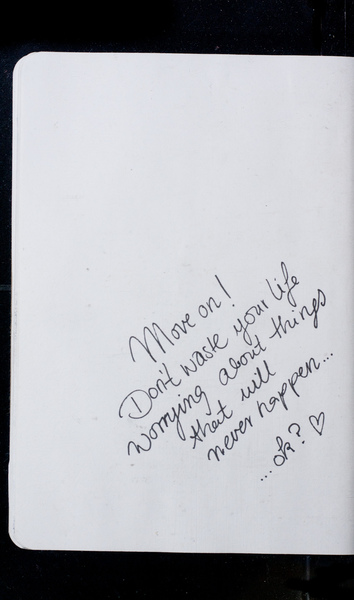 Move on!
Don't waste your life
worrying about things
that will
never happen...
...ok? ♡